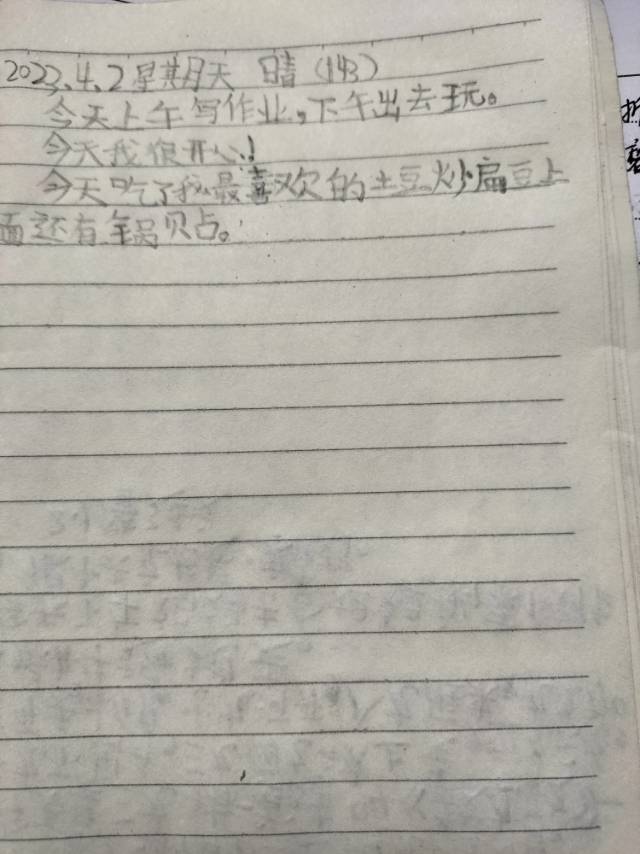 2023.4.2星期天 晴 (143)
今天上午写作业,下午出去玩。
今天我很开心!
今天吃了我最喜欢的土豆炒扁豆上
面还有锅贝占。